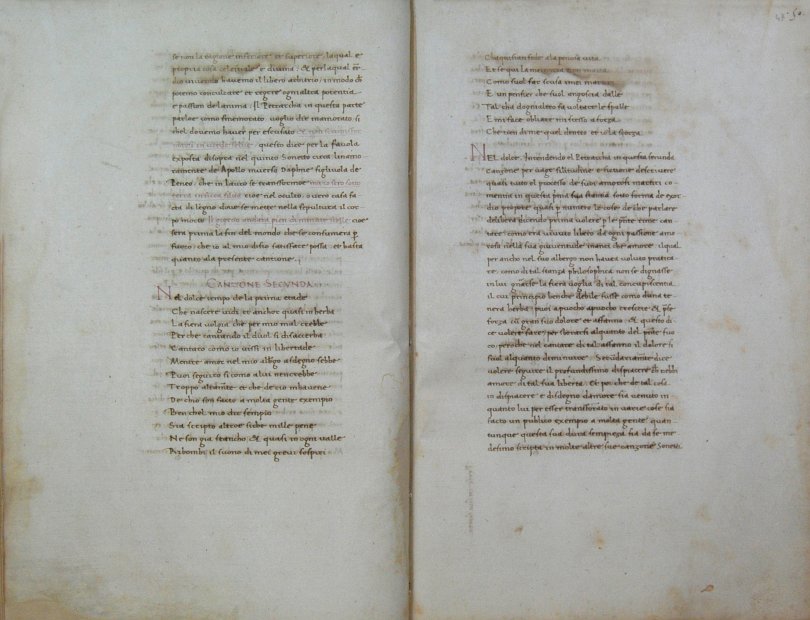 se non la ragione inferiore et superiore, laqual e
propria cosa celestiale e divina, et per laqual
havemo il libero arbitrio, in modo
potemo conculcare et regere ogni altra potentia
e passion de lanima. Il Petrarcha in questa parte
parla come smemorato voglio dire inamorato si
chel dovemo haver per escusato
questo dice per la favola
exposta disopra nel quinto Sonetto circa linamo
ramento de Apollo inverso Daphne figliuola de
Peneo, che in lauro se transformoe
cioe nel occulto, o vero casa fa
cta di legno dove se mette nella sepultura il cor
po morto cioe
sera prima la fin del mondo che se consumera p
fuoco, che io al mio disio satisfare possa. et basta
quanto ala presente canzone.
CANZONE SECUNDA
Nel dolce tempo de la prima etade
Che nascere vide et anchor quasi in herba
La fiera voglia che per mio mal crebbe
Per che cantando il duol si disacerba
Cantaro como io vissi in libertade
Mentre amor nel mio albergo a sdegno sebbe
Puoi seguiro si como a lui nencrebbe
Troppo altamente et che de cio mbavene
De chio son facto a molta gente exempio
Ben chel mio dre sempio
Sia scripto altrove si che mille pene
Ne son gia stanche, et quasi in ogni valle
Ribombi il suono di mei grevi sospiri
Chaquistan fede ala penosa vita
E se qui la memoria non maita
Como suol far scusa mei martiri
E un pensier che sol angoscia dalle
Tal cha dognaltro fa voltare le spalle
E mi face obliare mi stesso a forza
Che ten di me quel dentro et io la scorza
NEL dolce. Intendendo el Petrarcha in questa secunda
Canzone per vage similitudine e figure descrivere
quali tutto il processo de suoi amorosi martiri co
mentia in questa prima sua stantia sotto forma de exor
dio proponere quasi per numero le cose de che parlare
delibera dicendo prima volere per le presente rime can
tare como era vivuto libero da ogni passione amo
rosa nella sua juventude inanci che amore, il qual
per ancho nel suo albergo non haveva voluto pratica
re, como di tal stanza philosophica non se dignasse
in lui gnasse la fiera voglia di tal concupiscentia
il cui principio benche debile fusse como duna te
nera herba puoi apuocho apuocho crescete et prese
forza con gran suo dolore et affanno. et questo di
ce volere fare per sfocarsi alquanto del presente fuo
co, peroche nel cantare di tal affanno il dolore si
suol alquanto diminuire. Secundariamente dice
volere seguire il profundissimo dispiacere chebbi
amore di tal sua liberta. Et per che de tal cosi
io dispiacere e disdegno damore sia venuto in
quanto lui per esser transformato in varie cose sia
facto un publico exempio a molta gente, quan
tunque questa sua dura sempieza sia da se me
desimo scripta in molte altre sue canzone Soneti